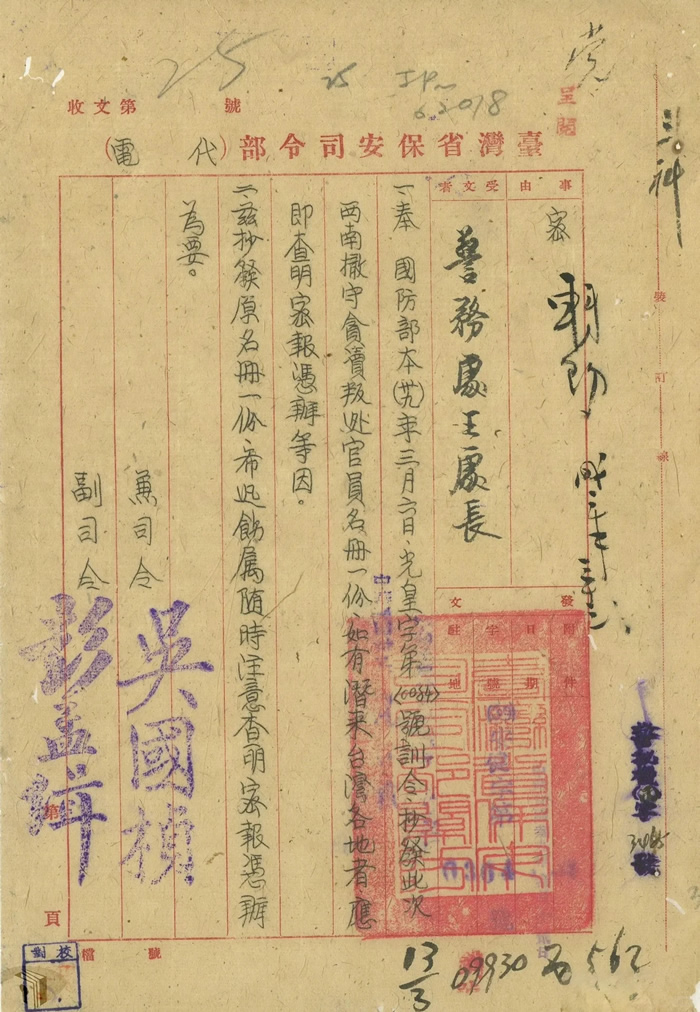 25
25
6.2018
收文第
號
呈閱
臺灣省保安司令部(代電)
三科
事由
受文者
密
警務處王處長
一、奉 國防部本(卅九)年三月六日光皇字第(0034)號訓令抄發此次
西南撤守貪瀆叛逃官員名冊一份如有潛來台灣各地者應
即查明密報憑辦等因。
二、茲抄發原名冊一份希迅飭属随時注意查明密報憑辦
為要。
兼司令 吳國楨
副司令 彭孟緝
發文
附件
日期
字號
駐地
裝
訂
線
第
頁
13/3
09930
562
校對
檔號